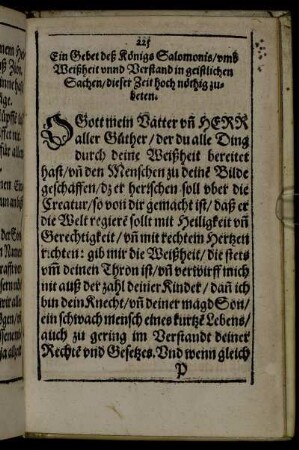 225
Ein Gebet deß Königs Salomonis/vmb
Weißheit vnnd Verstand in geistlichen
Sachen/dieser Zeit hoch nöthig zu-
beten.
O Gott mein Vatter vñ HERR
aller Güther/der du alle Ding
durch deine Weißheit bereitet
hast/vñ den Menschen zu deinē Bilde
geschaffen/dz er herschen soll vber die
Creatur/so von dir gemacht ist/daß er
die Welt regierē sollt mit Heiligkeit vñ
Gerechtigkeit/vñ mit rechtem Hertzen
richten: gib mir die Weißheit/die stets
vm̃ deinen Thron ist/vñ verwirff mich
nit auß der zahl deiner Kinder/dañ ich
bin dein Knecht/vñ deiner magd Son/
ein schwach mensch eines kurtzē Lebens/
auch zu gering im Verstandt deiner
Rechtē vnd Gesetzes. Und wenn gleich
P